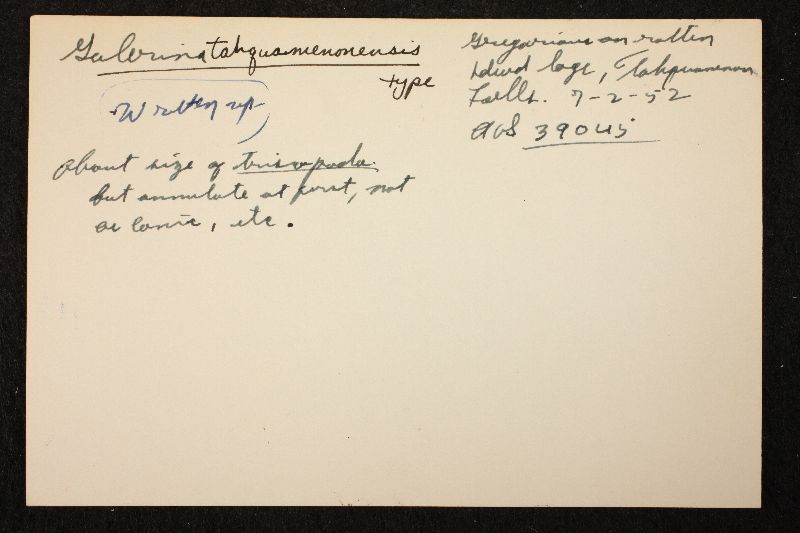 Galerina tahquamenonensis
type
Written up
Gregarious on rotten
hdwd logs, Tahquamenon
Falls. 7-2-52
AHS 39045
About size of triscopoda
but annulate at first, not
as conic, etc.